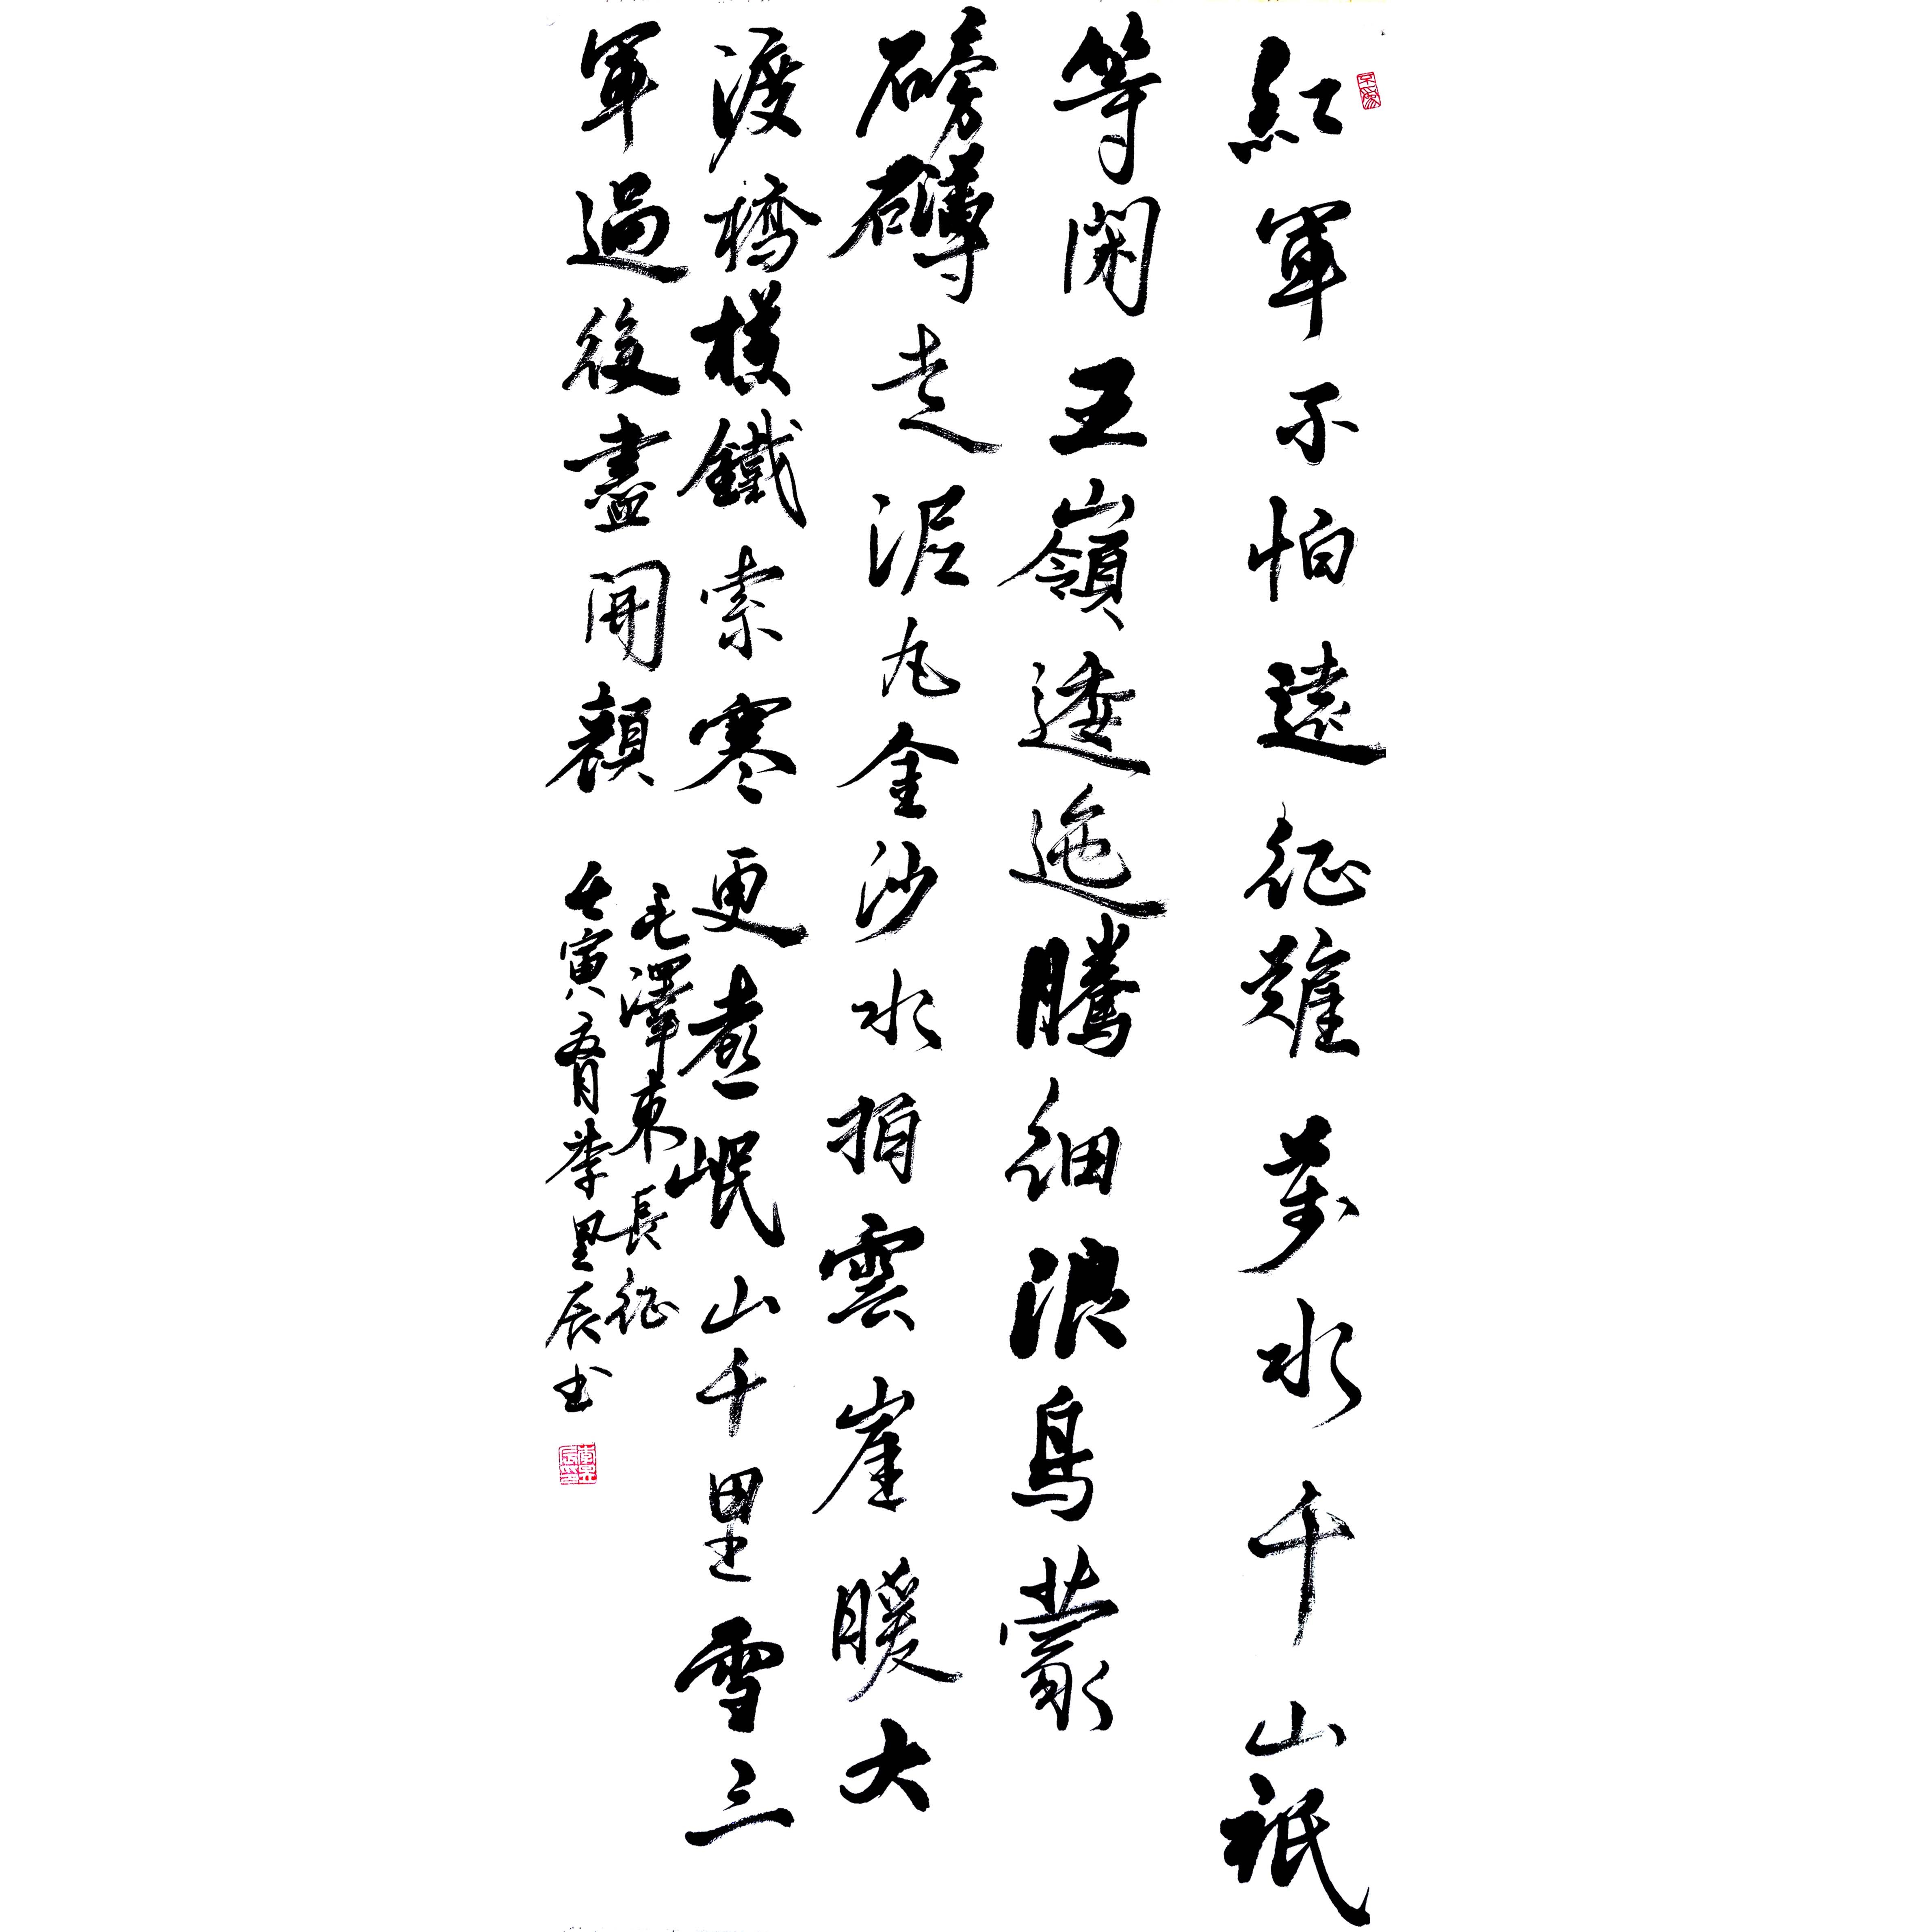 紅軍不怕遠征難萬水千山衹
等閑五嶺逶迤騰細浪烏蒙
磅礴走泥丸金沙水拍雲崖暖大
渡橋橫鐵索寒更喜岷山千里雪三
軍過後盡開顏
毛澤東長征
壬寅五月李里辰书